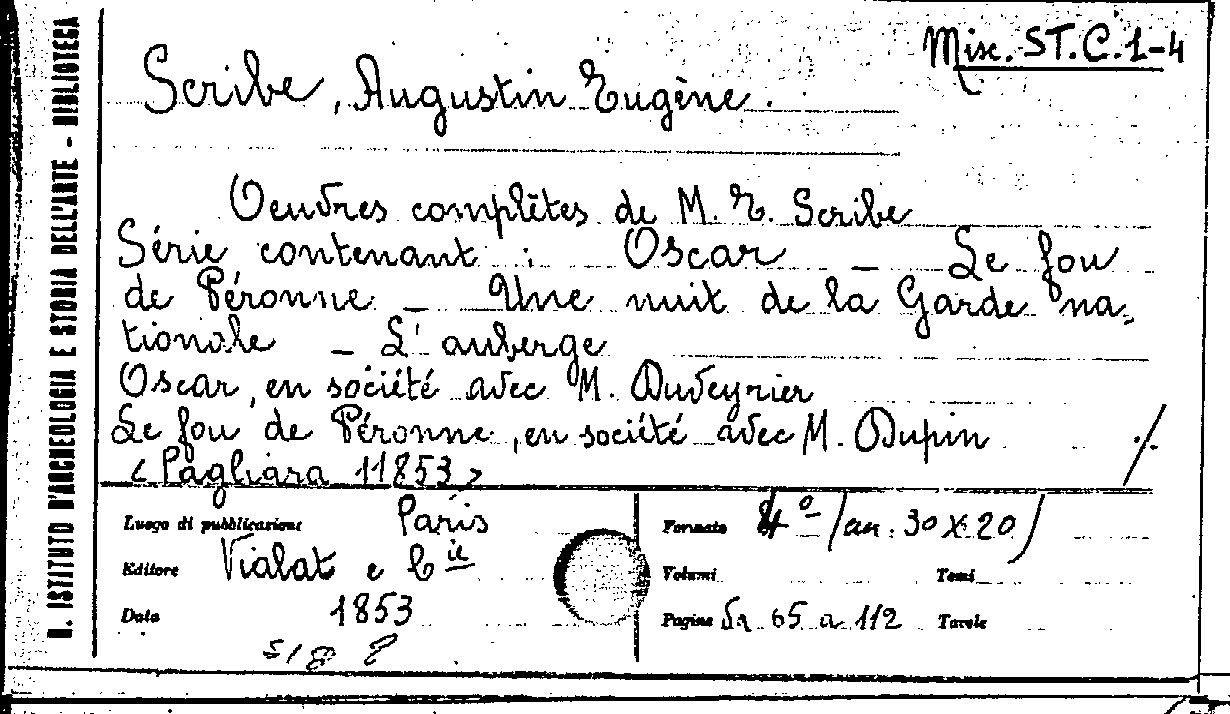 Misc. ST.C.1-4
Scribe, Augustin Eugène.
Oeuvres complètes de M. E. Scribe
Série contenant : Oscar _ Le fou
de Péronne _ Une nuit de la Garde na-
tionale _ L'auberge
Oscar, en société avec M. Duveyrier
Le fou de Péronne, en société avec M. Dupin ./.
< Pagliara 11853 >
Luogo di pubblicazione Paris
Editore Vialat e Cie
Data 1853
Formato 4º (cm. 30 x 20)
Volumi Tomi
Pagine Da 65 a 112 Tavole
R. ISTITUTO D'ARCHEOLOGIA E STORIA DELL'ARTE - BIBLIOTECA